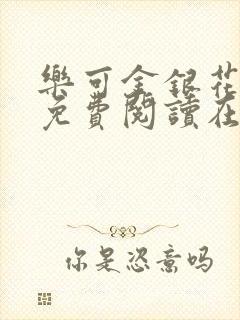 樂可金銀花
免費閱讀在
你是恣意吗